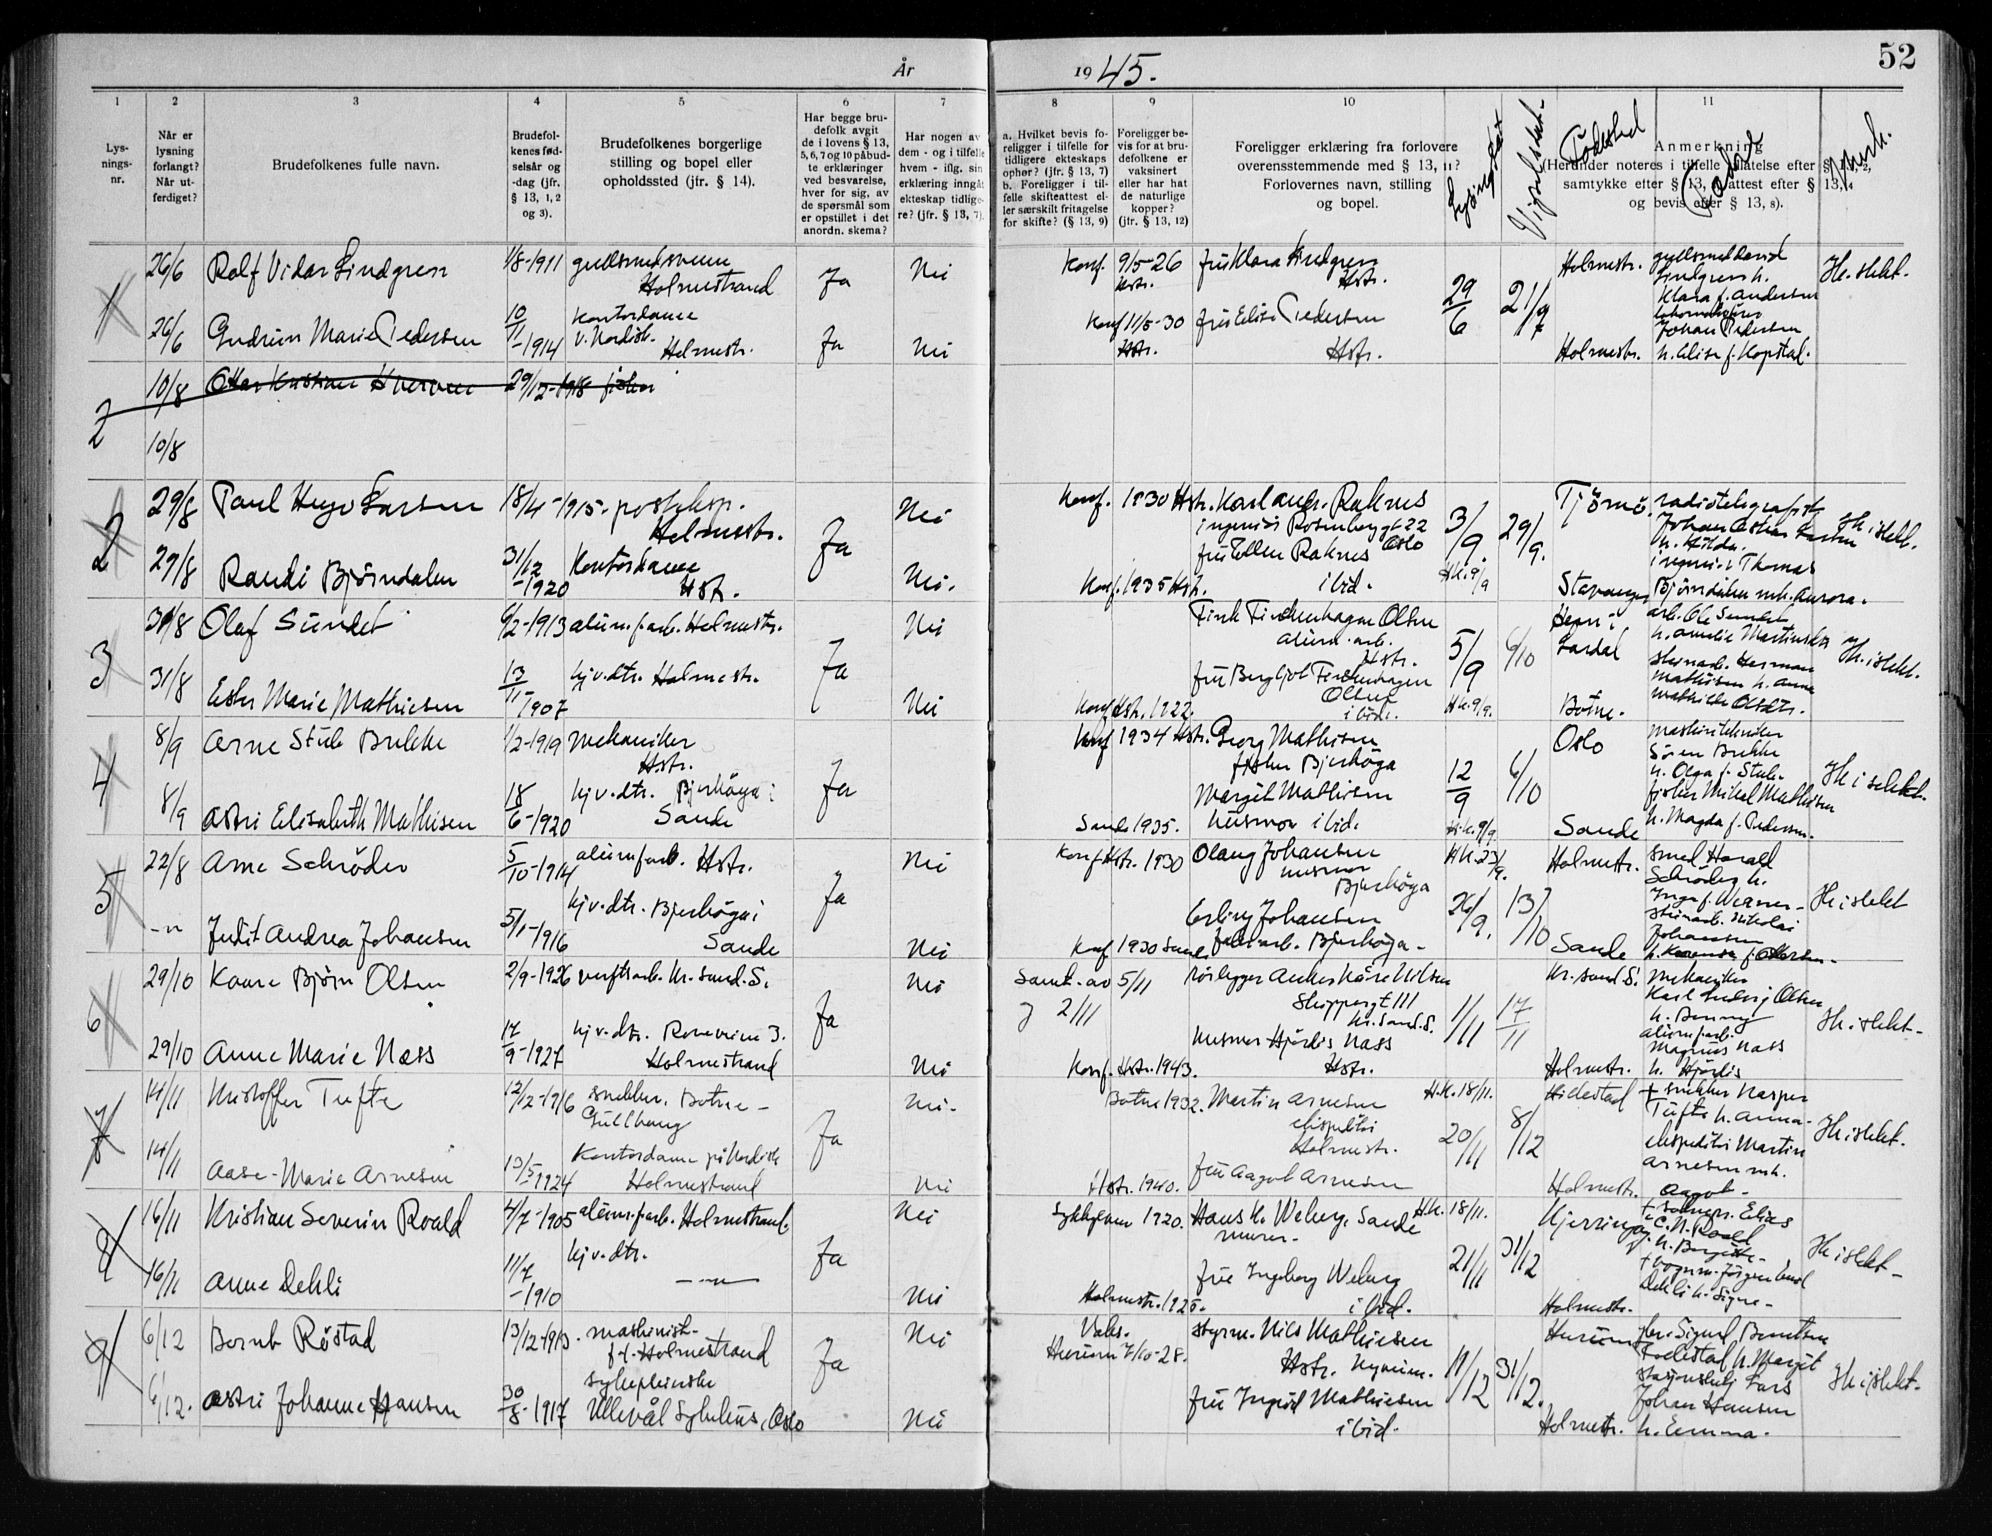 År 1945.
52
1 2 3 4 5 6 7 8 9 10 11
Lys-
nings-
nr.
Når er
lysning
forlangt?
Når ut-
ferdiget?
Brudefolkenes fulle navn.
Brudefol-
kenes fød-
selsår og
-dag (jfr.
§ 13, 1, 2
og 3).
Brudefolkenes borgerlige
stilling og bopel eller
opholdssted (jfr. § 14).
Har begge bru-
defolk avgit
de i lovens § 13,
5, 6, 7 og 10 påbud-
te erklæringer
ved besvarelse,
hver for sig, av
de spørsmål som
er opstillet i det
anordn. skema?
Har nogen av
dem - og i tilfelle
hvem - iflg. sin
erklæring inngåt
ekteskap tidlige-
re? (jfr. § 13, 7).
a. Hvilket bevis fo-
religger i tilfelle for
tidligere ekteskaps
ophør? (jfr. § 13, 7)
b. Foreligger i til-
felle skifteattest el-
ler særskilt fritagelse
for skifte? (§ 13, 9)
Foreligger be-
vis for at bru-
defolkene er
vaksinert
eller har hat
de naturlige
kopper?
(jfr. § 13, 12)
Foreligger erklæring fra forlovere
overensstemmende med § 13, 11?
Forlovernes navn, stilling
og bopel.
Vigselsdat.
Födested
Anmerkning
(Herunder noteres i tilfelle tillatelse efter § 13, 2,
samtykke efter § 13, attest efter § 13, 4
og bevis efter § 13, 8).
1
26/6 Rolf Vidar Lindgren 1/8-1911 gullsmedsvenn
Holmestrand Ja Nei
Konf. 9/5-26 fru Klara Lindgren
Hstr. Hstr.
29/6 21/7 Holmestr. Lindgren h.
Klara f. Andersen H. i slekt.
26/6 Gudrun Marie Pedersen 10/11-1914 Kontordame
v. Nordisk. Holmestr. Ja Nei
Konf 11/5-30 fru Elise Pedersen
Hstr. Hstr.
Holmestr. Johan Pedersen
h. Elise f. Kopstad.
2 10/8 29/12-1918 fisker
10/8
2
29/8 Paul Hugo Larsen 18/4-1915 posteksp.
Holmestr. Ja Nei
Konf. 1930 Hstr. Karl Andr. Raknes
ingeniör Rosenborggt 22
Oslo
3/9. 29/9. Tjömö radiotelegrafist
Johan Oskar Larsen
h. Hilda. H. i slekt.
29/8 Randi Bjørndalen 31/12-1920 Kontordame
Hstr. Nei.
Konf. 1935 Hstr. fru Ellen Raknes
ibid. H.K. 9/9
Stavanger ingeniör Thomas
Bjørndalen m.h. Aurora.
3
31/8 Olaf Sundet 6/2-1913 alum.f.arb. Holmestr. Ja Nei
Olsen
alum. arb.
Hstr. 5/9 6/10
Lardal arb. Ole Sundet
h. Amelie H. i slekt.
31/8 Ester Marie Mathiesen 13/11-1907 hjv. dtr. Holmestr. Nei
Konf Hstr. 1922. fru Bergljot
Olsen
ibid. H.K. 9/9.
Botne. Herman
Mathiesen h. Anna
Mathilde Olsdtr.
4
8/9 Arne Stub Brekke 1/2-1919 mekaniker
Hstr. Ja
Konf 1934 Hstr. Georg Mathisen
fisker Bjerkøya
12/9 6/10 Oslo maskintekniker
Sören Brekke
h. Olga f. Stub. H. i slekt.
8/9 Astri Elisabeth Mathisen 18/6-1920 hjv. dtr. Bjerkøya i
Sande
Sande 1935. Margit Mathisen
husmor ibid. H.K. 9/9
Sande fisker Mikal Mathisen
h. Magda f. Pedersen.
5
22/8 Arne Schrøder 5/10-1914 alumf.arb. Hstr. Ja Nei
Konf Hstr. 1930 Olaug Johansen
husmor
Bjerkøya H.K. 23/9.
26/9. 13/10 Holmestr. smed Harald
Schrøder h.
Inga f. Werner - H i slekt
-"- Judit Andrea Johansen 5/1-1916 hjv. dtr. Bjerkøya i
Sande Nei
Konf 1930 Sande Erling Johansen
Bjerkøya -
Sande Nikolai
Johansen
6
29/10 Kaare Bjørn Olsen 2/9-1926 verftsarb. Kr.sand. S. Ja Nei
Samt. av 5/11 rörlegger Anker Kåre Nilsen
g 2/11 Skippergt 111
Kr. Sand. S.
1/11 17/11 Kr. Sand S. Mekaniker
Karl Ludvig Olsen
h. Benny H. i slekt -
29/10 Anne Marie Næss 17/9-1927 hjv. dtr.
Holmestrand Nei
Konf. Hstr. 1943. husmor Hjørdis Næss
Hstr.
Holmestr. alumf.arb.
Magnus Næss
h. Hjørdis
7
14/11 Kristoffer Tufte 12/12-1916 snekker. Botne -
Gullhaug Ja Nei -
Botne 1932. Martin Arnesen
ekspeditör
Holmestr. H.K. 18/11.
20/11 8/12 Hidestad + snekker Kasper
Tufte h. Anna - H i slekt.
14/11 Aase-Marie Arnesen 13/5-1924 Kontordame på Nordisk
Holmestrand Nei
Hstr. 1940. fru Aagot Arnesen
Holmestr. ekspeditör Martin
Arnesen m.h.
Aagot -
8
16/11 Kristian Severin Roald 4/7-1905 alum.f.arb. Holmestrand. Ja Nei
Sykkylven 1920. Hans K. Weberg, Sande
murer - H.K. 18/11.
21/11 31/12 Elias
C. N. Roald
h. Bergitte - H i slekt -
16/11 Anne Dehli 11/7-1910 hjv. dtr. -"- Nei
Holmestr. 1925. fru Ingeborg Weberg
ibid.
Holmestr. Dehli h. Signe -
9
6/12 Bernt Røstad 13/12-1913. maskinist -
f.t. Holmestrand Ja Nei
Vaks.
Hurum 7/10-28. styrm. Nils Mathiesen
Hstr.
11/12 31/12. Hurum Sigurd Berntsen
h. Margit H i slekt -
6/12. Astri Johanne Hansen 30/8-1917 sykepleierske
Ullevål Sykehus, Oslo Nei
fru Ingrid Mathiesen
ibid.
Holmestr. Lars
Johan Hansen
h. Emma.